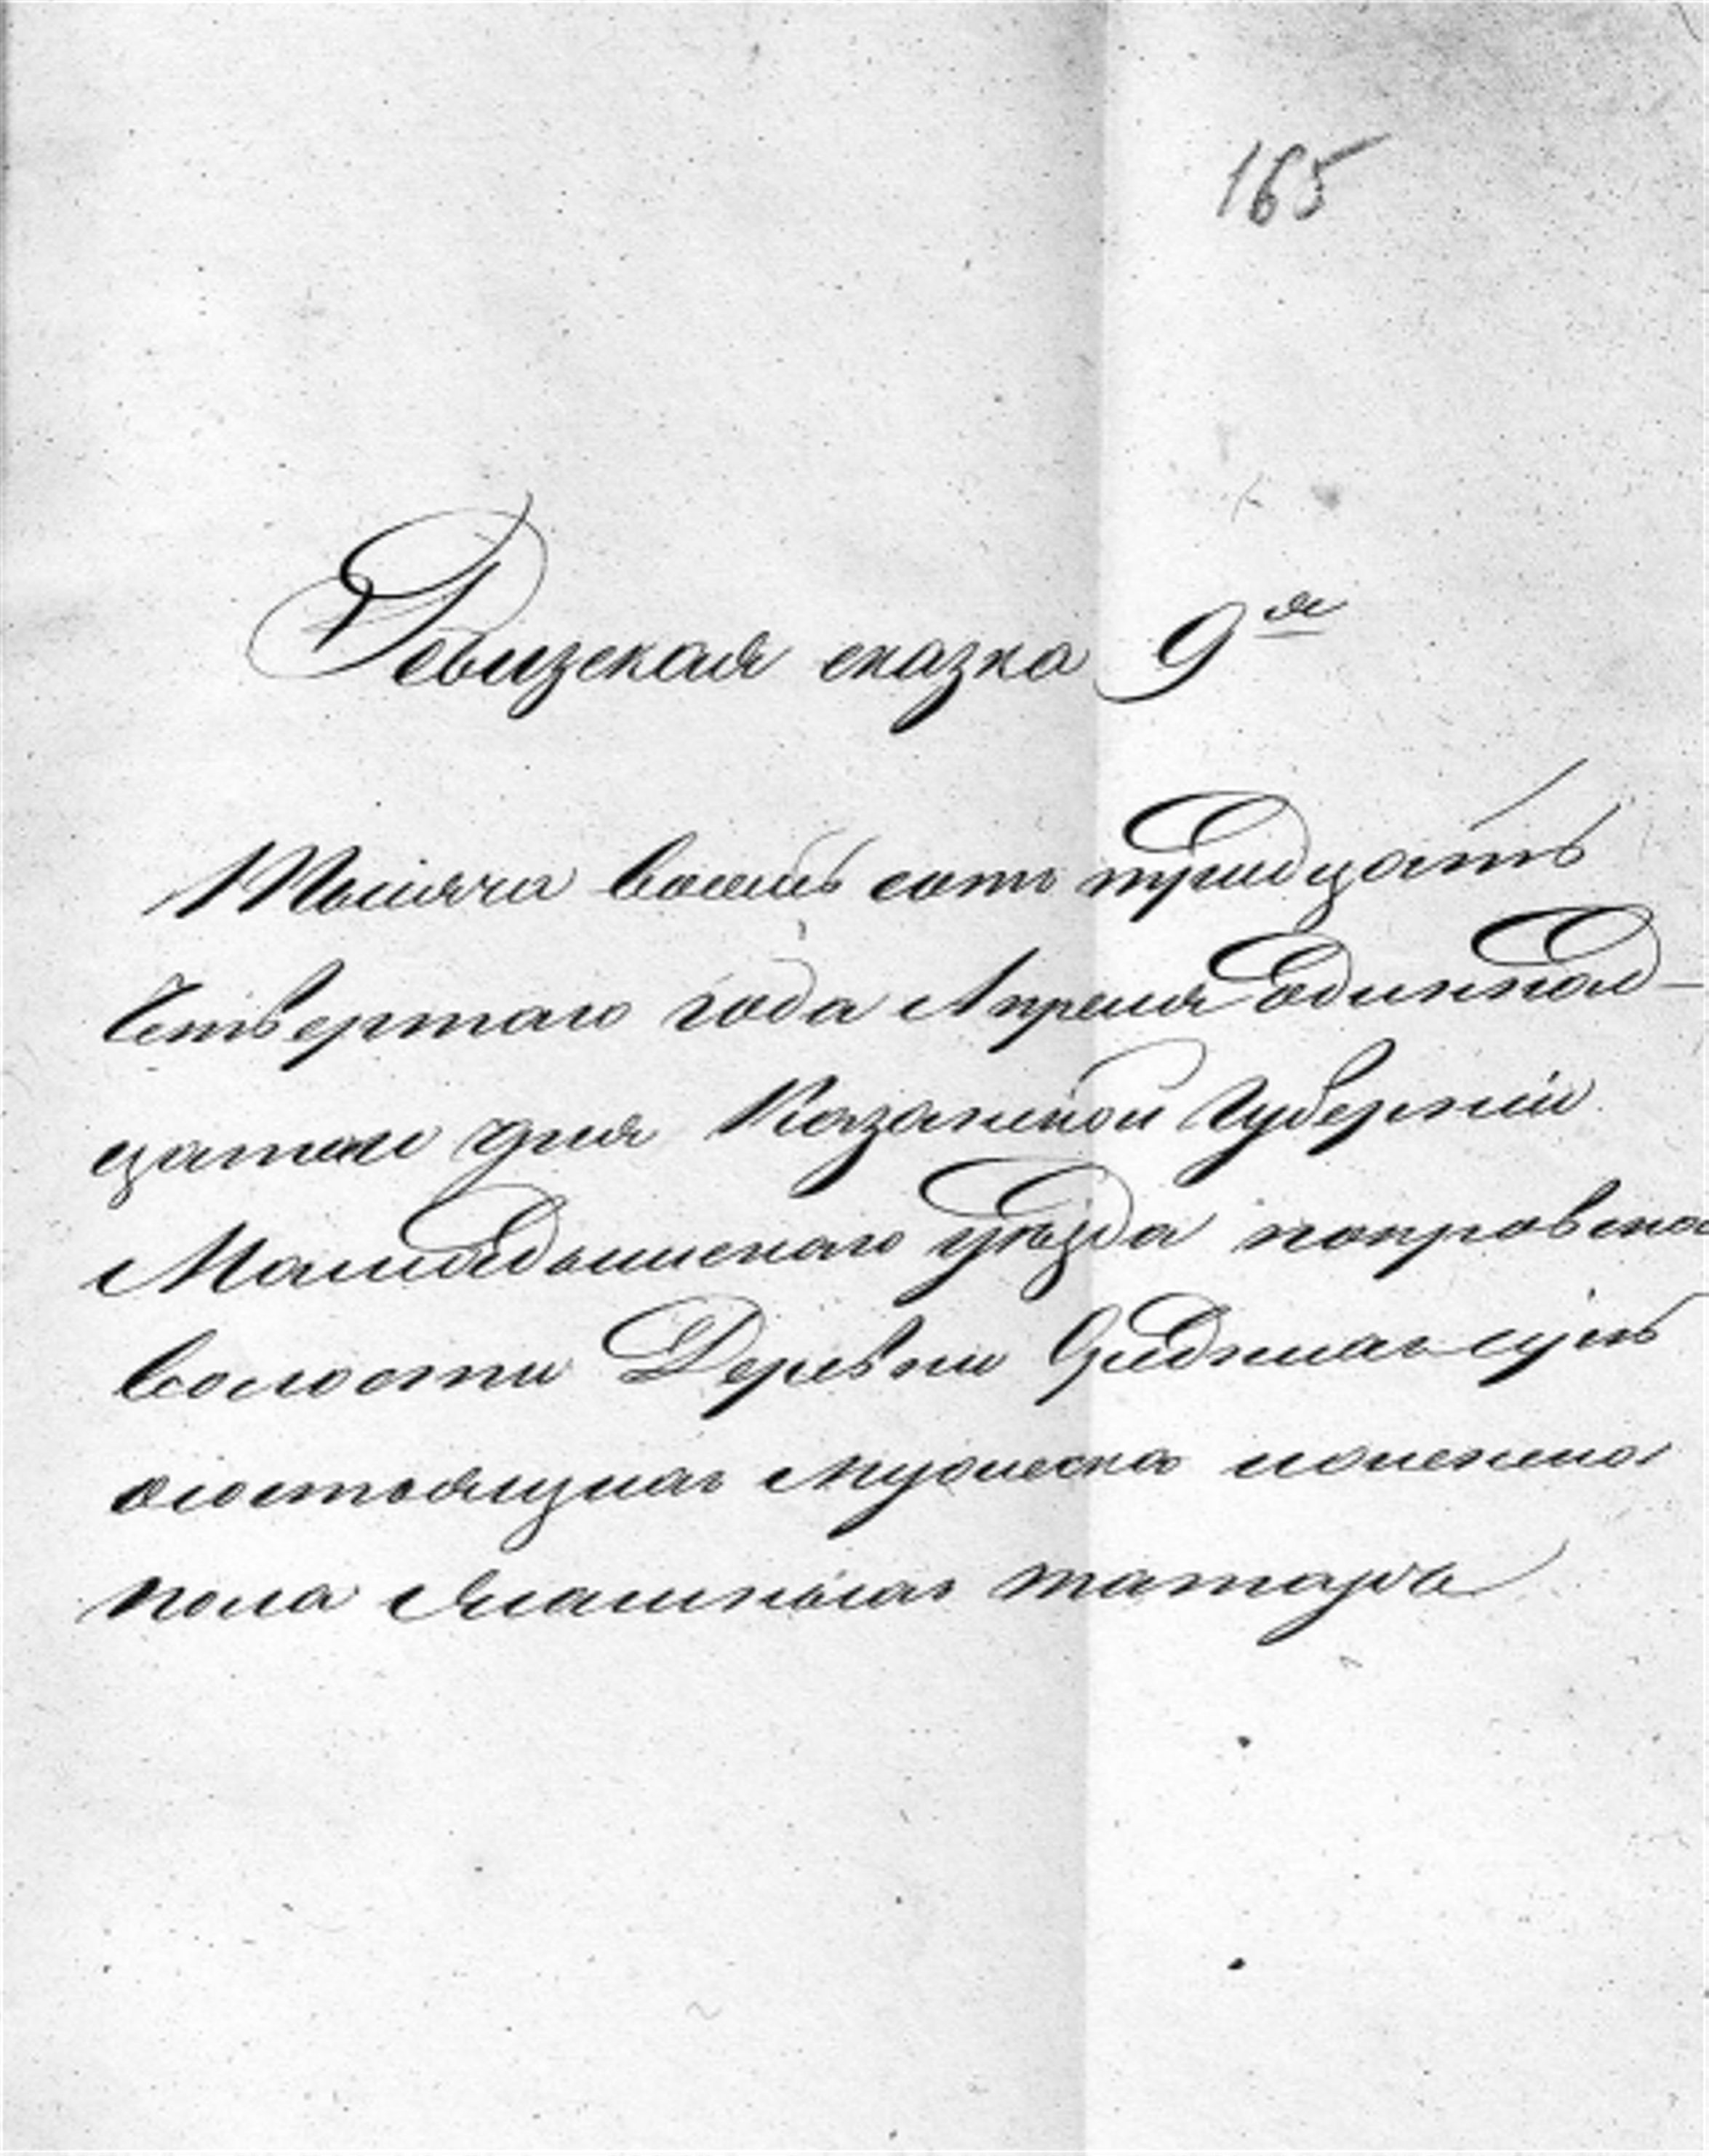 165
Ревизская сказка 9ая
Тысяча восемь сотъ тридцать
Четвертаго года Апреля Одиннад-
цатаго дня Казанской Губерніи
Мамадышскаго уѣзда покровско
волости Деревни
о состоящихъ мужеска и женска
пола Ясашныхъ татаръ